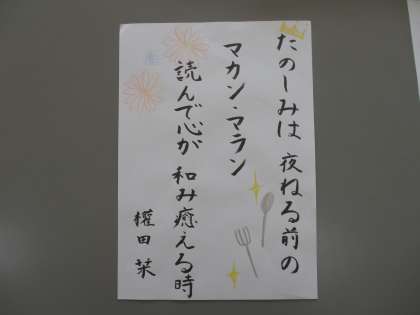 たのしみは 夜ねる前の
マカン・マラン
読んで心が 和み癒える時
権田 栞